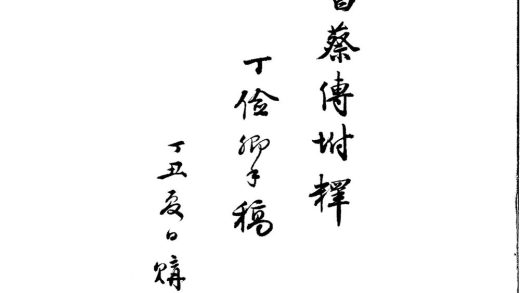 書蔡傳坿釋
丁儉卿手稿
丁丑夏日購